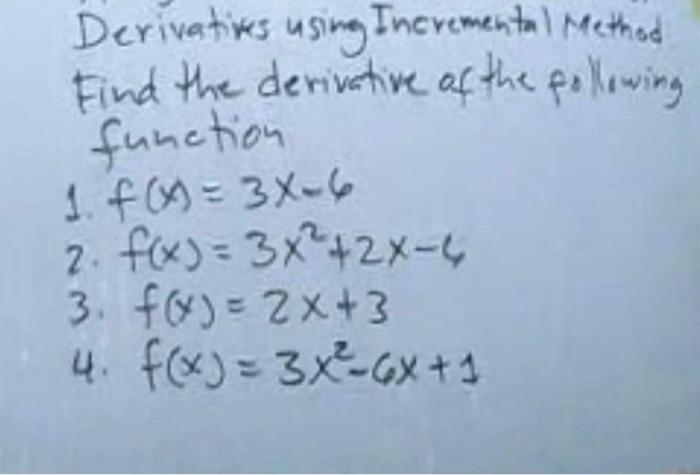 Derivatives using Incremental Method
Find the derivative of the following
function
1. f(x) = 3x-6
2. f(x) = 3x²+2x-4
3. f(x) = 2x+3
4. f(x) = 3x²-6x+1